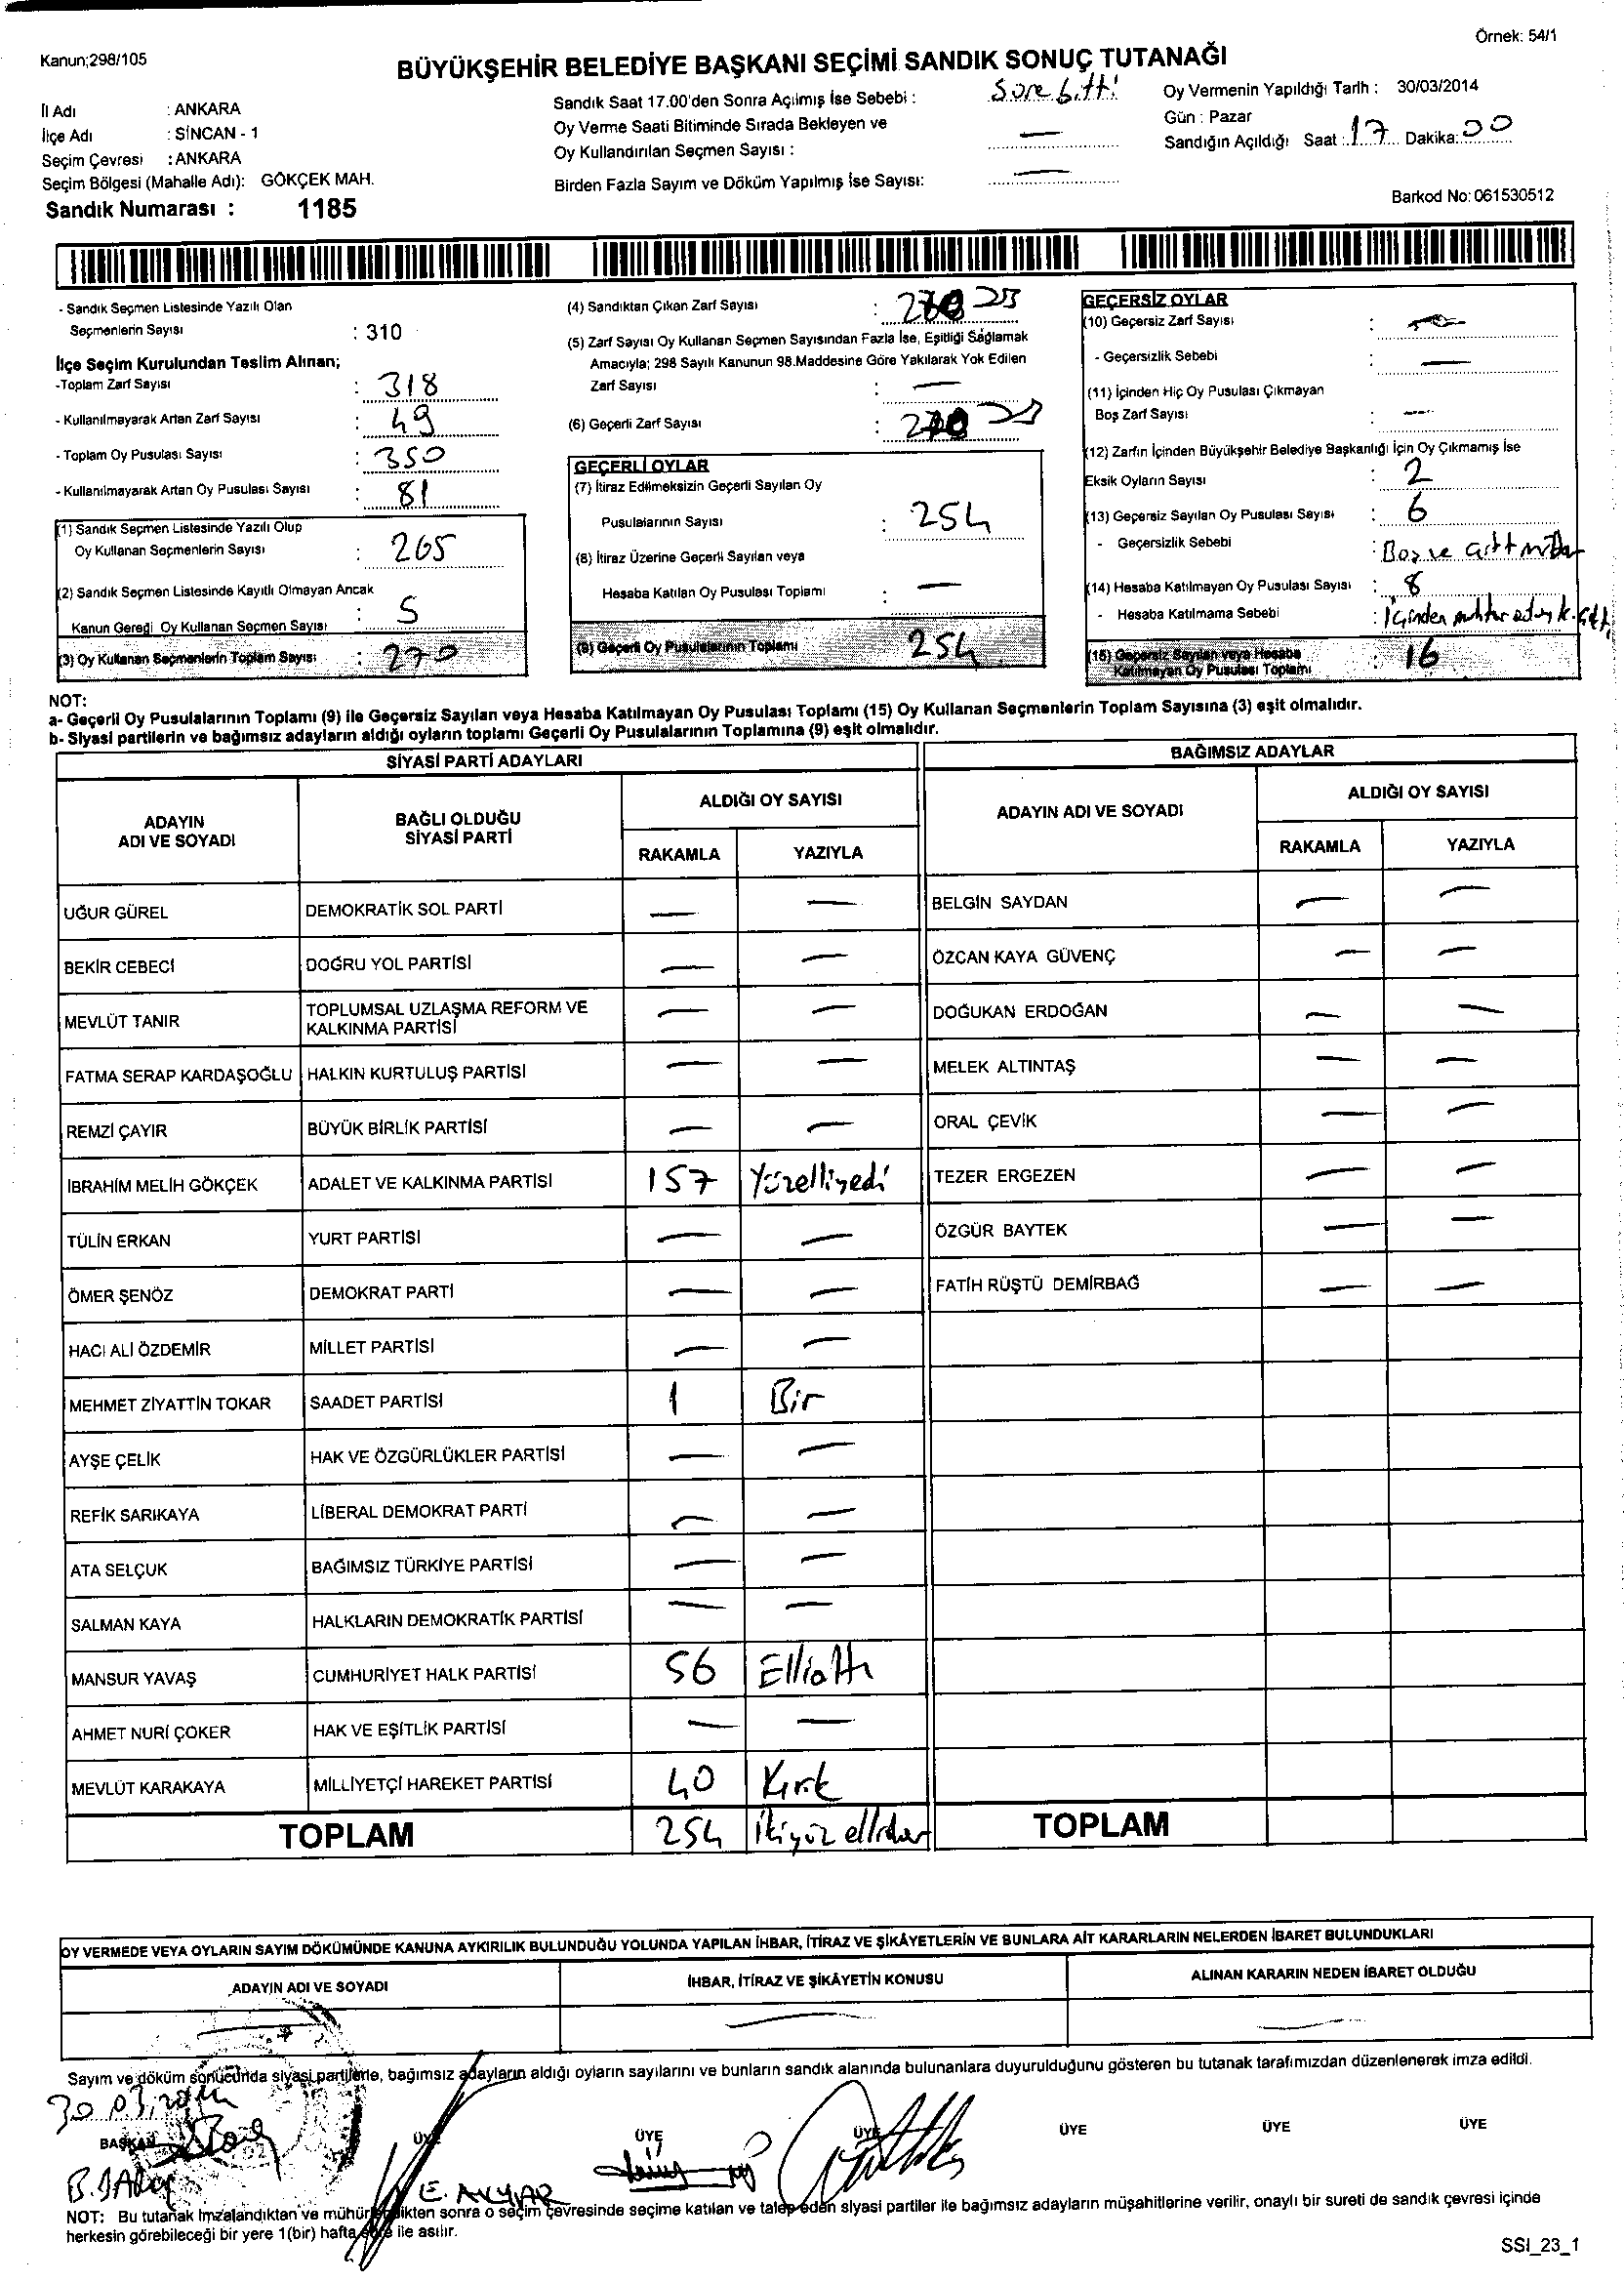 Örnek: 54/1
Kanun;298/105
BÜYÜKŞEHİR BELEDİYE BAŞKANI SEÇİMİ SANDIK SONUÇ TUTANAĞI
İl Adı : ANKARA
İlçe Adı : SİNCAN - 1
Seçim Çevresi : ANKARA
Seçim Bölgesi (Mahalle Adı): GÖKÇEK MAH.
Sandık Numarası : 1185
Sandık Saat 17.00'den Sonra Açılmış İse Sebebi : Süre bitti
Oy Verme Saati Bitiminde Sırada Bekleyen ve
Oy Kullandırılan Seçmen Sayısı : —
Birden Fazla Sayım ve Döküm Yapılmış İse Sayısı: —
Oy Vermenin Yapıldığı Tarih : 30/03/2014
Gün : Pazar
Sandığın Açıldığı Saat : 17 Dakika: 00
Barkod No: 061530512
- Sandık Seçmen Listesinde Yazılı Olan
Seçmenlerin Sayısı : 310
İlçe Seçim Kurulundan Teslim Alınan;
-Toplam Zarf Sayısı : 318
- Kullanılmayarak Artan Zarf Sayısı : 49
- Toplam Oy Pusulası Sayısı : 350
- Kullanılmayarak Artan Oy Pusulası Sayısı : 81
(1) Sandık Seçmen Listesinde Yazılı Olup
Oy Kullanan Seçmenlerin Sayısı : 265
(2) Sandık Seçmen Listesinde Kayıtlı Olmayan Ancak
Kanun Gereği Oy Kullanan Seçmen Sayısı : 5
(3) Oy Kullanan Seçmenlerin Toplam Sayısı : 270
(4) Sandıktan Çıkan Zarf Sayısı :
(5) Zarf Sayısı Oy Kullanan Seçmen Sayısından Fazla İse, Eşitliği Sağlamak
Amacıyla; 298 Sayılı Kanunun 98.Maddesine Göre Yakılarak Yok Edilen
Zarf Sayısı : —
(6) Geçerli Zarf Sayısı :
GEÇERLİ OYLAR
(7) İtiraz Edilmeksizin Geçerli Sayılan Oy
Pusulalarının Sayısı : 254
(8) İtiraz Üzerine Geçerli Sayılan veya
Hesaba Katılan Oy Pusulası Toplamı : —
(9) Geçerli Oy Pusulalarının Toplamı 254
GEÇERSİZ OYLAR
(10) Geçersiz Zarf Sayısı :
- Geçersizlik Sebebi : —
(11) İçinden Hiç Oy Pusulası Çıkmayan
Boş Zarf Sayısı : —
(12) Zarfın İçinden Büyükşehir Belediye Başkanlığı İçin Oy Çıkmamış İse
Eksik Oyların Sayısı : 2
(13) Geçersiz Sayılan Oy Pusulası Sayısı : 6
- Geçersizlik Sebebi : Boş ve
(14) Hesaba Katılmayan Oy Pusulası Sayısı : 8
- Hesaba Katılmama Sebebi : İçinden muhtar
(15) Geçersiz Sayılan veya Hesaba
Katılmayan Oy Pusulası Toplamı : 16
NOT:
a- Geçerli Oy Pusulalarının Toplamı (9) ile Geçersiz Sayılan veya Hesaba Katılmayan Oy Pusulası Toplamı (15) Oy Kullanan Seçmenlerin Toplam Sayısına (3) eşit olmalıdır.
b- Siyasi partilerin ve bağımsız adayların aldığı oyların toplamı Geçerli Oy Pusulalarının Toplamına (9) eşit olmalıdır.
SİYASİ PARTİ ADAYLARI
ADAYIN ADI VE SOYADI BAĞLI OLDUĞU SİYASİ PARTİ ALDIĞI OY SAYISI
RAKAMLA YAZIYLA
UĞUR GÜREL DEMOKRATİK SOL PARTİ — —
BEKİR CEBECİ DOĞRU YOL PARTİSİ — —
MEVLÜT TANIR TOPLUMSAL UZLAŞMA REFORM VE KALKINMA PARTİSİ — —
FATMA SERAP KARDAŞOĞLU HALKIN KURTULUŞ PARTİSİ — —
REMZİ ÇAYIR BÜYÜK BİRLİK PARTİSİ — —
İBRAHİM MELİH GÖKÇEK ADALET VE KALKINMA PARTİSİ 157 Yüzelliyedi
TÜLİN ERKAN YURT PARTİSİ — —
ÖMER ŞENÖZ DEMOKRAT PARTİ — —
HACI ALİ ÖZDEMİR MİLLET PARTİSİ — —
MEHMET ZİYATTİN TOKAR SAADET PARTİSİ 1 Bir
AYŞE ÇELİK HAK VE ÖZGÜRLÜKLER PARTİSİ — —
REFİK SARIKAYA LİBERAL DEMOKRAT PARTİ — —
ATA SELÇUK BAĞIMSIZ TÜRKİYE PARTİSİ — —
SALMAN KAYA HALKLARIN DEMOKRATİK PARTİSİ — —
MANSUR YAVAŞ CUMHURİYET HALK PARTİSİ 56 Elliatı
AHMET NURİ ÇOKER HAK VE EŞİTLİK PARTİSİ — —
MEVLÜT KARAKAYA MİLLİYETÇİ HAREKET PARTİSİ 40 Kırk
TOPLAM 254 İkiyüz ellidört
BAĞIMSIZ ADAYLAR
ADAYIN ADI VE SOYADI ALDIĞI OY SAYISI
RAKAMLA YAZIYLA
BELGİN SAYDAN — —
ÖZCAN KAYA GÜVENÇ — —
DOĞUKAN ERDOĞAN — —
MELEK ALTINTAŞ — —
ORAL ÇEVİK — —
TEZER ERGEZEN — —
ÖZGÜR BAYTEK — —
FATİH RÜŞTÜ DEMİRBAĞ — —
TOPLAM
OY VERMEDE VEYA OYLARIN SAYIM DÖKÜMÜNDE KANUNA AYKIRILIK BULUNDUĞU YOLUNDA YAPILAN İHBAR, İTİRAZ VE ŞİKÂYETLERİN VE BUNLARA AİT KARARLARIN NELERDEN İBARET BULUNDUKLARI
ADAYIN ADI VE SOYADI İHBAR, İTİRAZ VE ŞİKÂYETİN KONUSU ALINAN KARARIN NEDEN İBARET OLDUĞU
— — —
Sayım ve döküm sonucunda siyasi partilerle, bağımsız adayların aldığı oyların sayılarını ve bunların sandık alanında bulunanlara duyurulduğunu gösteren bu tutanak tarafımızdan düzenlenerek imza edildi.
30.03.2014
BAŞKAN ÜYE ÜYE ÜYE ÜYE ÜYE ÜYE
NOT: Bu tutanak imzalandıktan ve mühürlendikten sonra o seçim çevresinde seçime katılan ve talep eden siyasi partiler ile bağımsız adayların müşahitlerine verilir, onaylı bir sureti de sandık çevresi içinde
herkesin görebileceği bir yere 1(bir) hafta süre ile asılır.
SSI_23_1